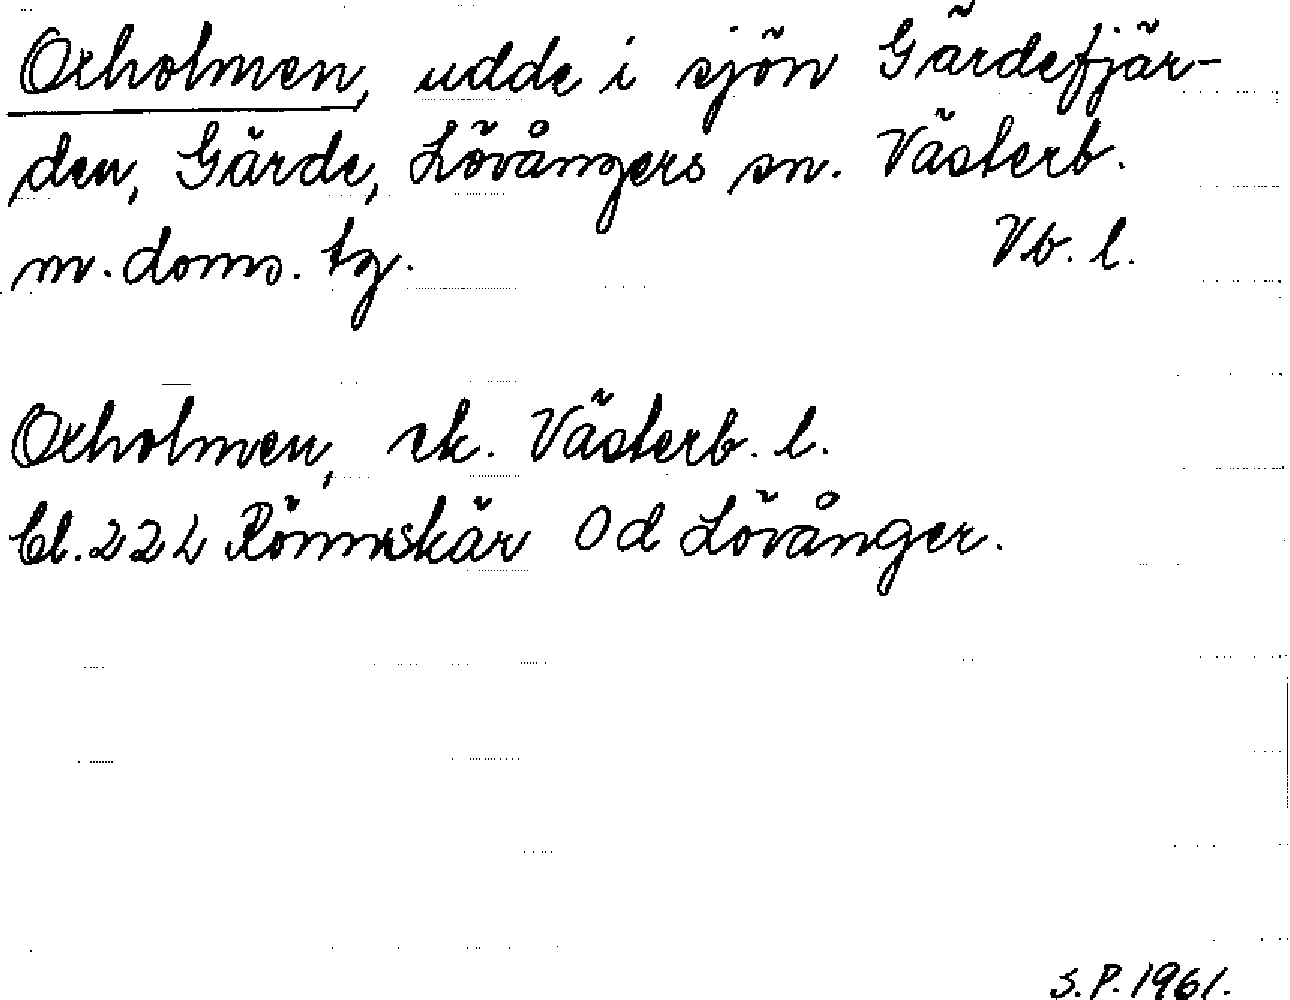 Oxholmen, udde i sjön Gärdefjär-
den, Gärde, Lövångers sn. Västerb.
m. doms. tg. Vb. l.
Oxholmen, sk. Västerb. l.
bl. 222 Rönnskär Od Lövånger.
S.P. 1961.